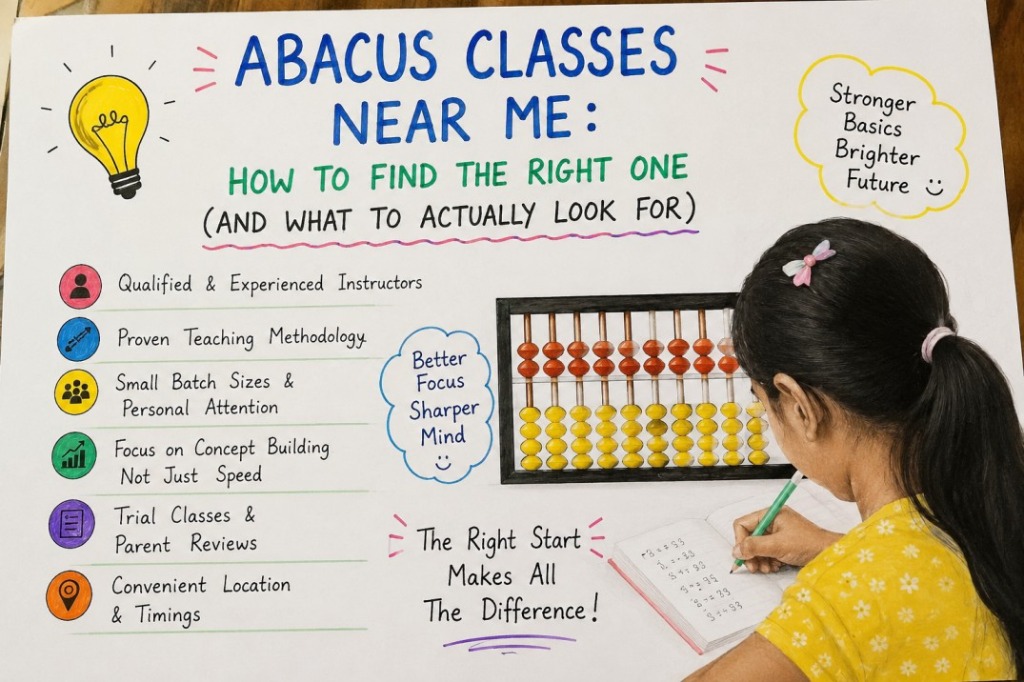 ABACUS CLASSES
NEAR ME:
HOW TO FIND THE RIGHT ONE
(AND WHAT TO ACTUALLY LOOK FOR)
Stronger
Basics
Brighter
Future
Qualified & Experienced Instructors
Proven Teaching Methodology
Small Batch Sizes &
Personal Attention
Focus on Concept Building
Not Just Speed
Trial Classes &
Parent Reviews
Convenient Location
& Timings
Better
Focus
Sharper
Mind
The Right Start
Makes All
The Difference!